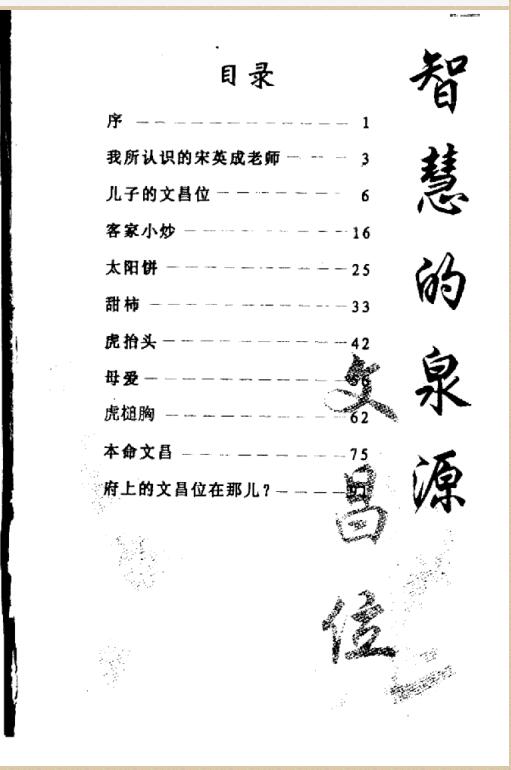 目录
序 — — — — — — — — — — — — 1
我所认识的宋英成老师 — — — 3
儿子的文昌位 — — — — — — 6
客家小炒 — — — — — — — — — 16
太阳饼 — — — — — — — — — — 25
甜柿 — — — — — — — — — — — 33
虎抬头 — — — — — — — — — — 42
母爱 — — — — — — — — — —
虎槌胸 — — — — — — — — — — 62
本命文昌 — — — — — — — — — 75
府上的文昌位在那儿? — — — —
智慧的泉源
文昌位